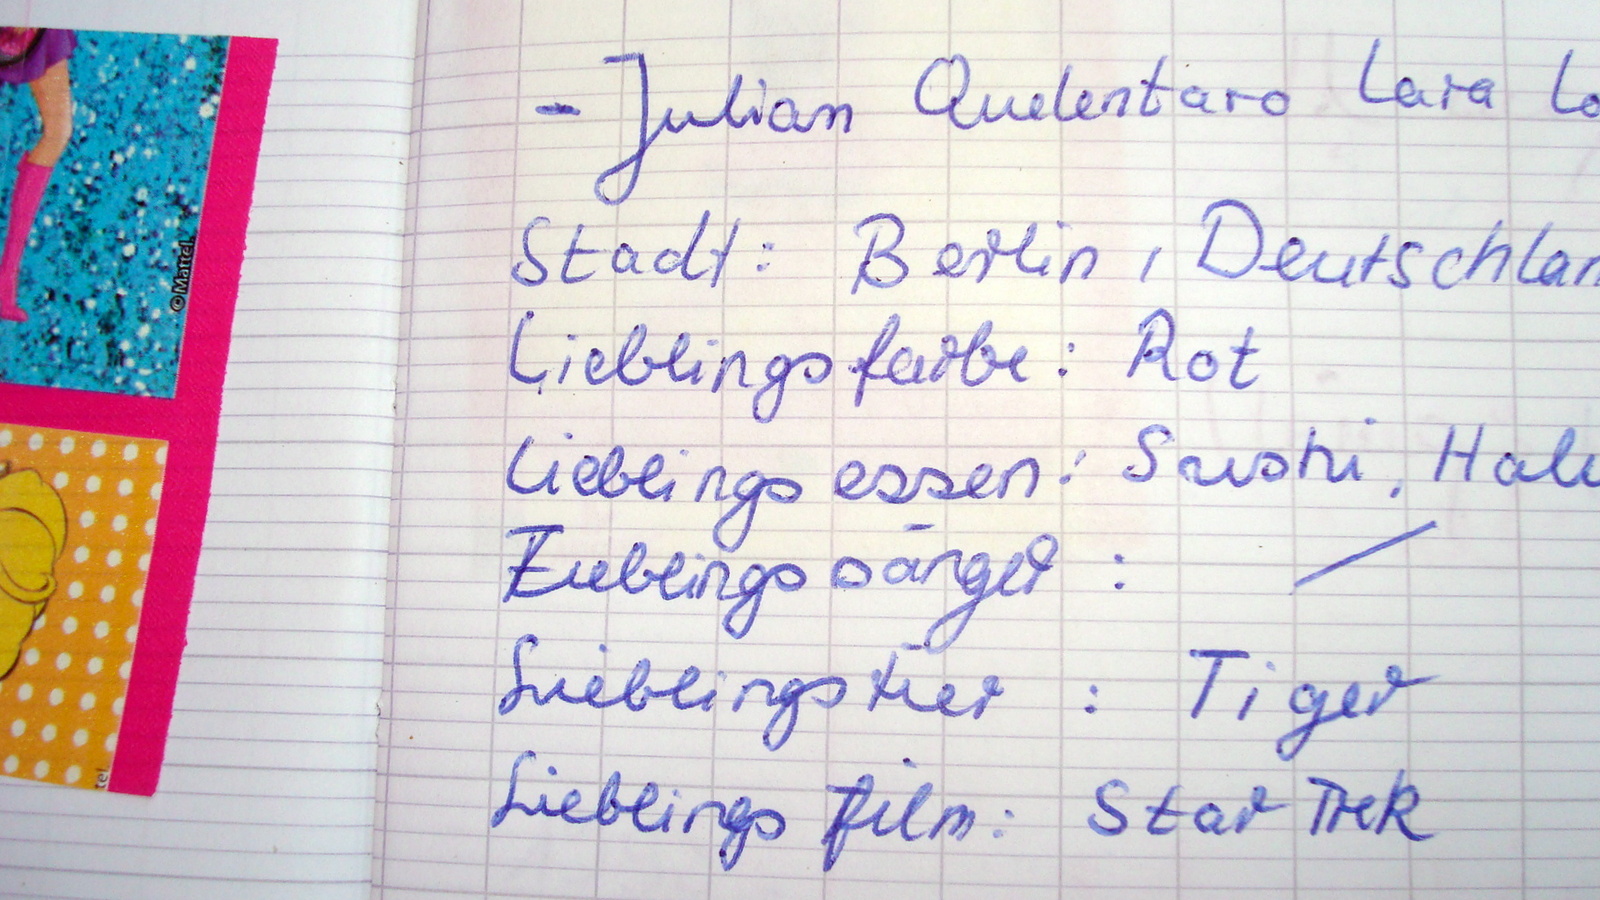 - Julian Quelentaro Lara Lo
Stadt: Berlin, Deutschlan
Lieblingsfarbe: Rot
Lieblingsessen: Sushi, Halu
Lieblingssänger: /
Lieblingstier: Tiger
Lieblingsfilm: Star Trek
© Mattel.
tel